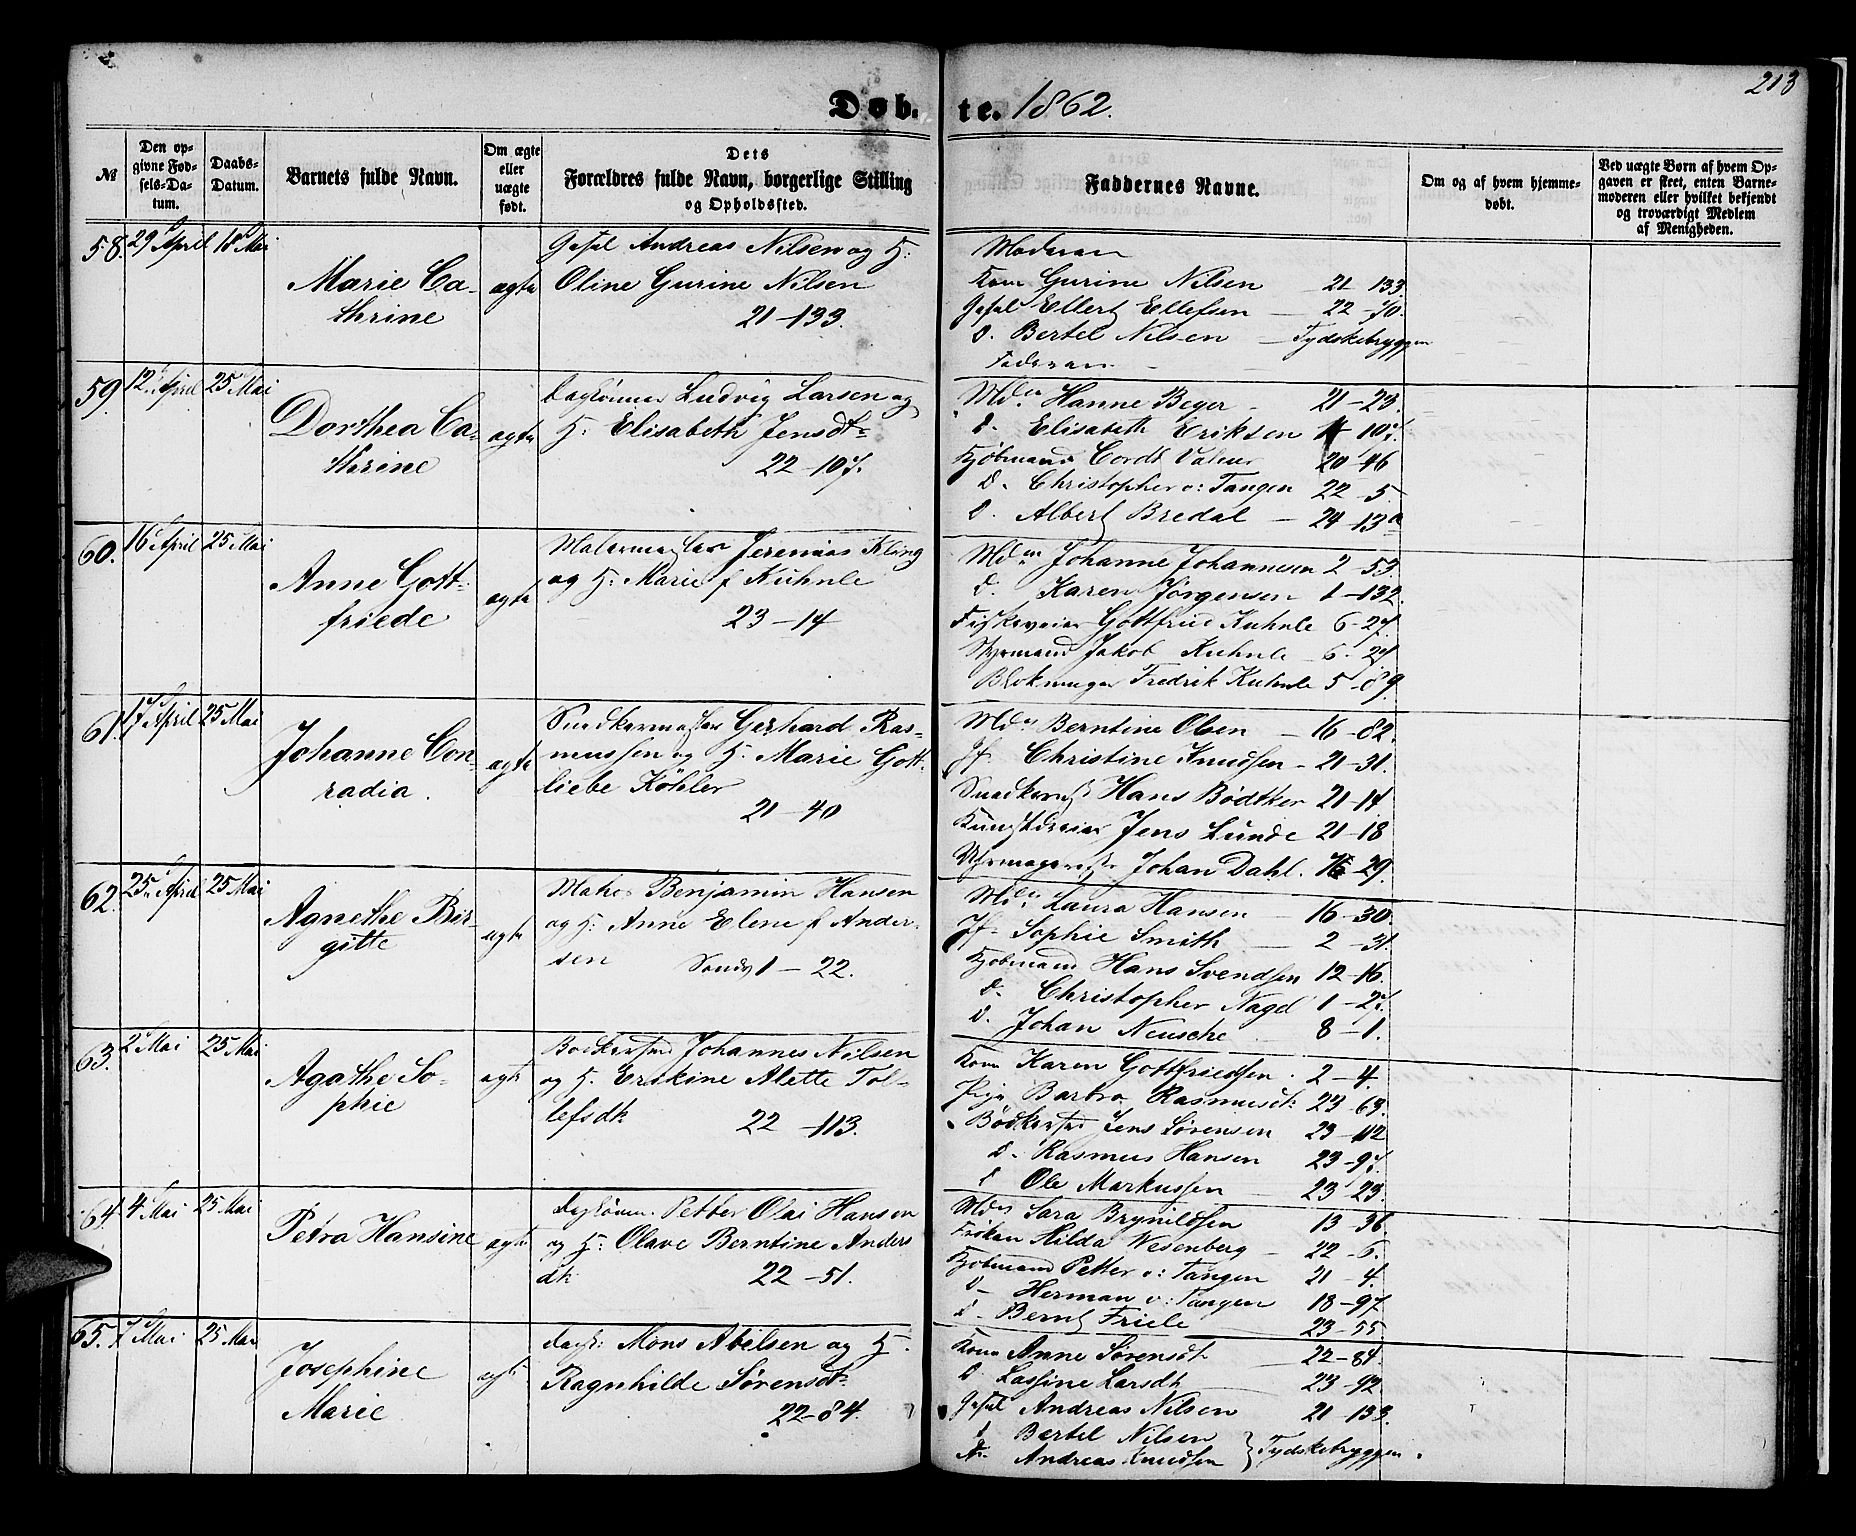 213
Døb. te. 1862.
№
Den op-
givne Fød-
sels-Da-
tum.
Daabs-
Datum.
Barnets fulde Navn.
Om ægte
eller
uægte
født.
Dets
Forældres fulde Navn, borgerlige Stilling
og Opholdssted.
Faddernes Navne.
Om og af hvem hjemme-
døbt.
Ved uægte Børn af hvem Op-
gaven er skeet, enten Barne-
moderen eller hvilket bekjendt
og troværdigt Medlem
af Menigheden.
58. 29 April 18 Mai
Marie Ca-
thrine
ægte
Gesel Andreas Nilsen og H:
Oline Gurine Nilsen
21-133.
Moderen
Kone Gurine Nilsen - 21-133
Gesel Ellert Ellefsen - 22-70.
d. Bertel Nilsen - Tydskebryggen
Faderen
59. 12 April 25 Mai
Dorthea Ca-
thrine
ægte
Dagl&oslash;nner Ludvig Larsen og
H: Elisabeth Jensdt
22-107.
Md. Hanne Beyer - 21-23.
d. Elisabeth Eriksen 107.
Kjøbmand Cordt Valeur 20-46
d. Christopher v: Tangen 22-5.
d. Albert Bredal - 24-13a
60. 16 April 25 Mai
Anne Gott-
friede
ægte
Malermester Jeremias Kling
og H: Marie f Kuhnle
23-14
Mdm Johanne Johannesen 2-53.
d. Karen Jørgensen 1-132.
Gottfried Kuhnle 6-27.
Styrmand Jakob Kuhnle 6-27
Blokmager Fredrik Kuhnle 5-89
61. 17 April 25 Mai
Johanne Con-
radia.
ægte
Snedkermester Gerhard Ras-
mussen og H. Marie Gott-
liebe Köhler
21-40
Md. Berntine Olsen - 16-82.
Jf. Christine Knudsen - 21-31.
Hans Bødtker 21-14
Kunstdreier Jens Lunde 21-18
Johan Dahl. 16-29.
62. 25 April 25 Mai
Agnethe Bir-
gitte
ægte
Benjamin Hansen
og H: Anne Elene f Ander-
sen 1-22.
Md. Laura Hansen - 16-30.
Jf. Sophie Smith - 2-31.
Kjøbmand Hans Svendsen 12-16.
d. Christopher Nagel 1-27.
d. Johan Neusche 8-1.
63. 2 Mai 25 Mai
Agathe So-
phie
ægte
Johannes Nilsen
og H. Erikine Alette Tol-
lefsdt 22-113.
Kone Karen Gottfriedsen. 2-4.
Pige Barbro Rasmusdt: 23-63.
Jens Sørensen 23-112
d. Rasmus Hansen 23-97.
d Ole Markussen - 23-23.
64. 4 Mai 25 Mai
Petra Hansine
ægte
Petter Olai Hansen
og H: Olave Berntine Anders
dt. 22-51.
Md Sara Brynildsen 13-36
Frøken Hilda Wesenberg - 22-6.
Kjøbmand Petter v: Tangen 21-4.
d- Herman v: Tangen 18-97
d- Bernt Friele 23-55
65. 7 Mai 25 Mai
Josephine
Marie
ægt
Mons Abelsen og H.
Ragnhilde Sørensdt.
22-84.
Kone Anne Sørensdt 22-84.
d Lassine Larsdt 23-92
Gesel Andreas Nilsen 21-133.
d Bertel Nilsen } Tydskebryggen.
Andreas Knudsen